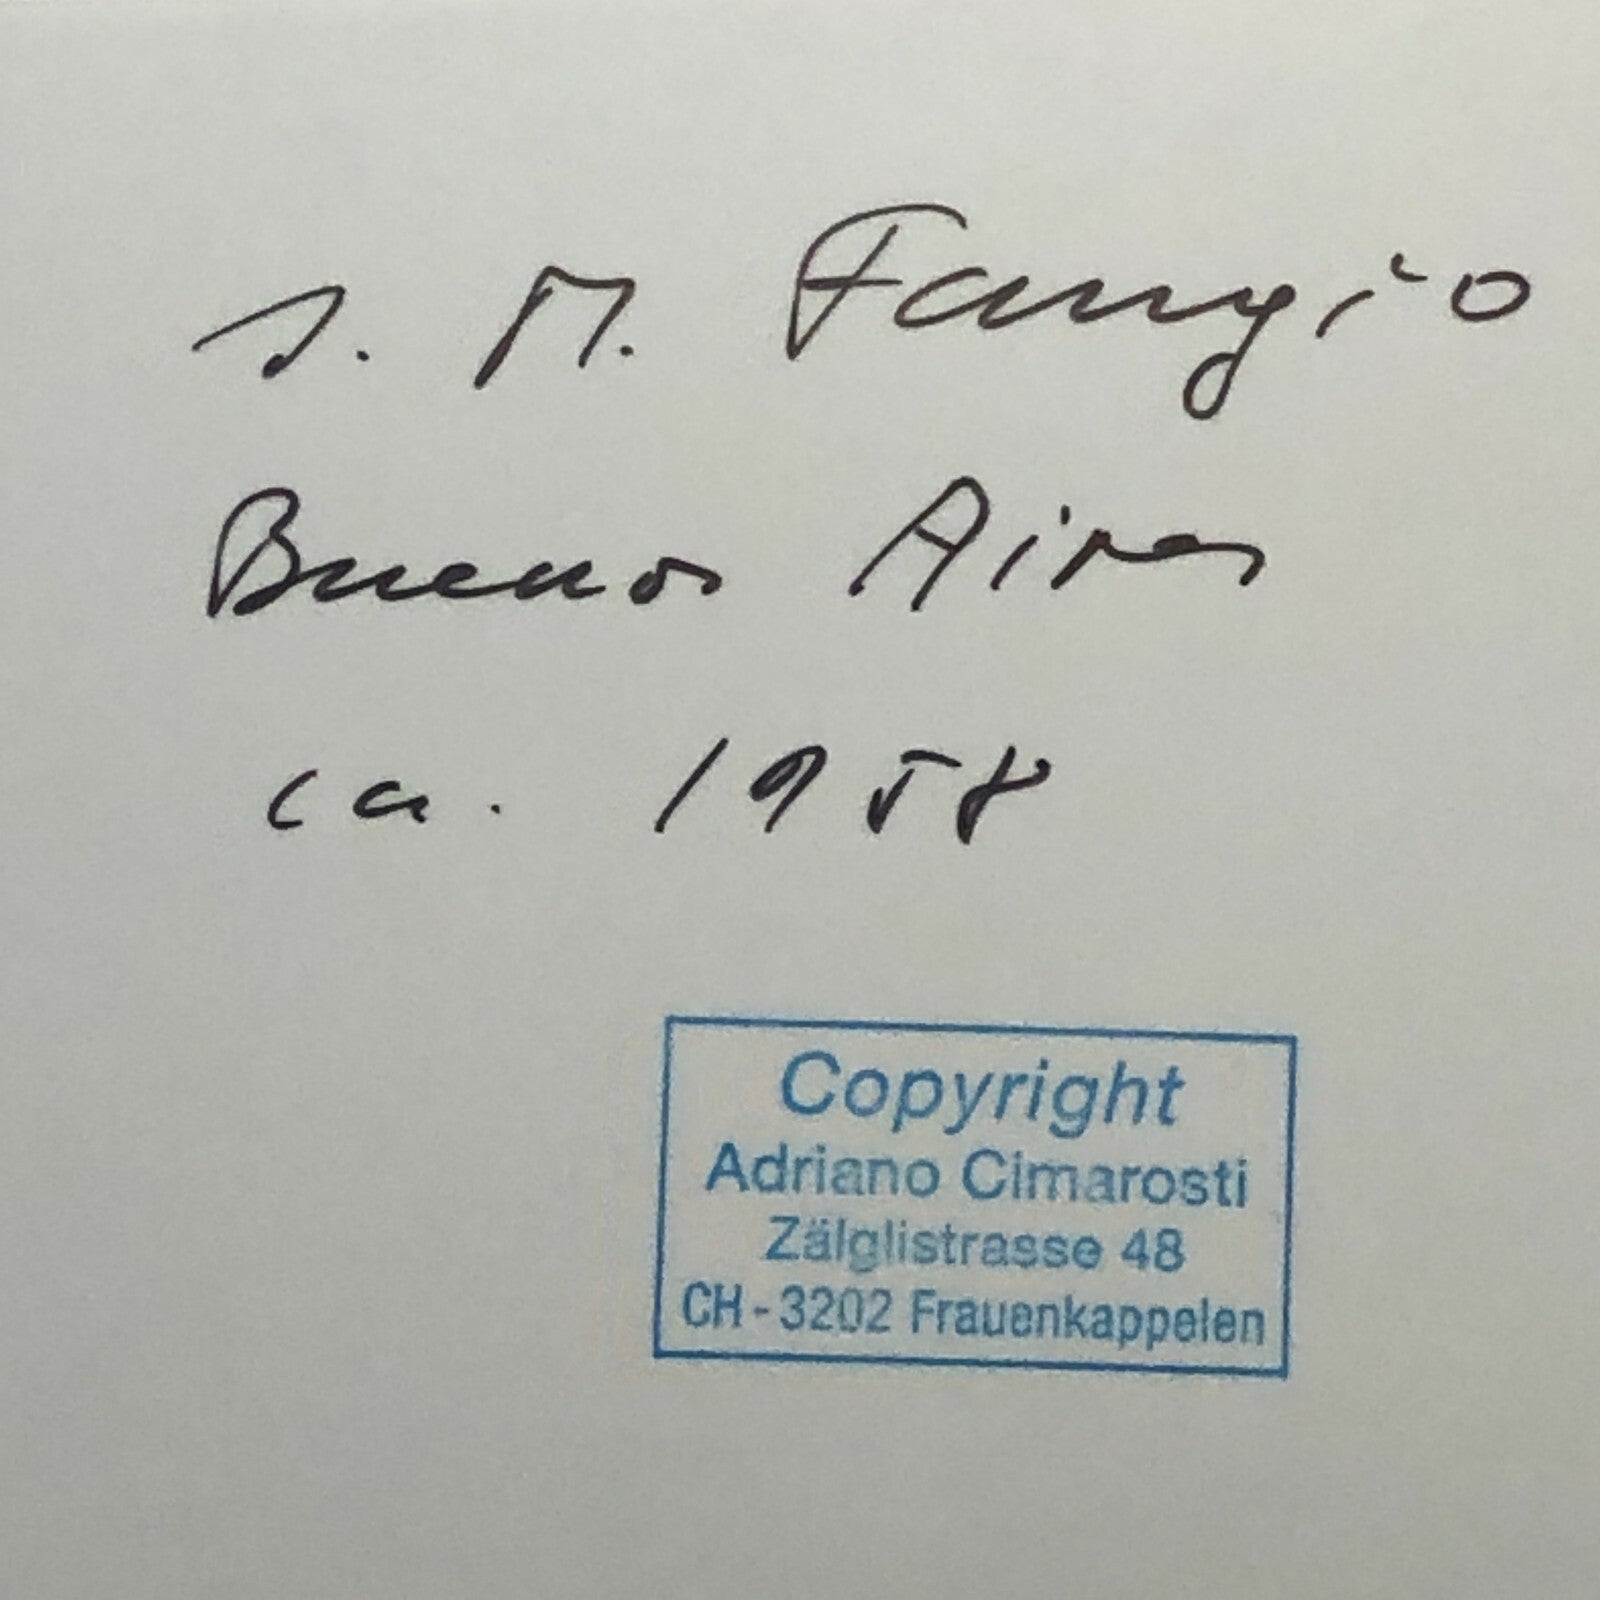 J. M. Fangio
Buenos Aires
ca. 1958
Copyright
Adriano Cimarosti
Zälglistrasse 48
CH-3202 Frauenkappelen